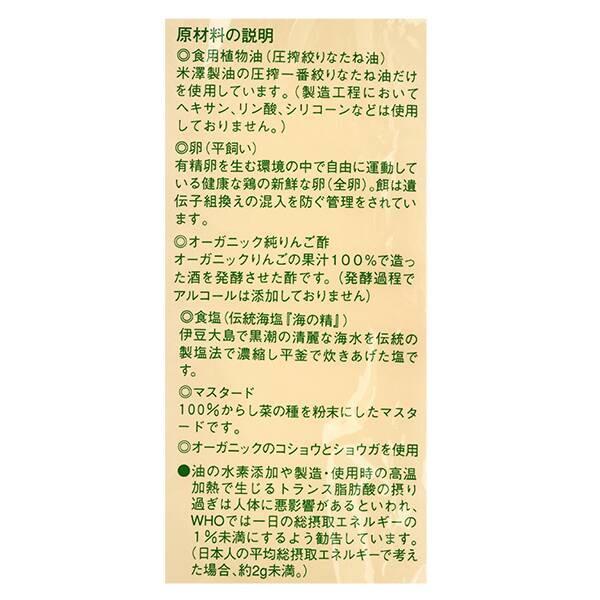 原材料の説明
◎食用植物油（圧搾絞りなたね油）
米澤製油の圧搾一番絞りなたね油だけ
を使用しています。（製造工程において
ヘキサン、リン酸、シリコーンなどは使用
しておりません。）
◎卵（平飼い）
有精卵を生む環境の中で自由に運動して
いる健康な鶏の新鮮な卵（全卵）。餌は遺
伝子組換えの混入を防ぐ管理をされてい
ます。
◎オーガニック純りんご酢
オーガニックりんごの果汁100％で造っ
た酒を発酵させた酢です。（発酵過程で
アルコールは添加しておりません）
◎食塩（伝統海塩『海の精』）
伊豆大島で黒潮の清麗な海水を伝統の
製塩法で濃縮し平釜で炊きあげた塩で
す。
◎マスタード
100％からし菜の種を粉末にしたマスタ
ードです。
◎オーガニックのコショウとショウガを使用
●油の水素添加や製造・使用時の高温
加熱で生じるトランス脂肪酸の摂り
過ぎは人体に悪影響があるといわれ、
WHOでは一日の総摂取エネルギーの
1％未満にするよう勧告しています。
（日本人の平均総摂取エネルギーで考え
た場合、約2g未満。）